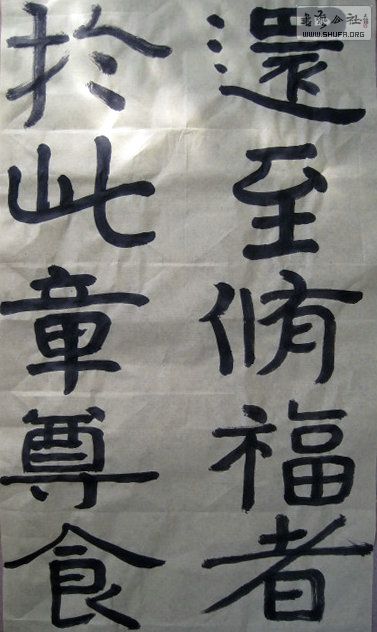 還至脩福者
於此章尊食
書藝公社
WWW.SHUFA.ORG